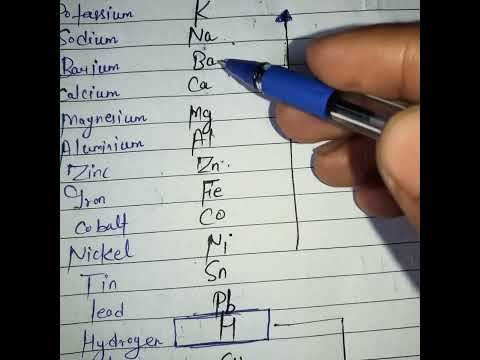 Potassium K
Sodium Na
Barium Ba
Calcium Ca
Magnesium Mg
Aluminium Al
Zinc Zn
Iron Fe
Cobalt CO
Nickel Ni
Tin Sn
lead Pb
Hydrogen H